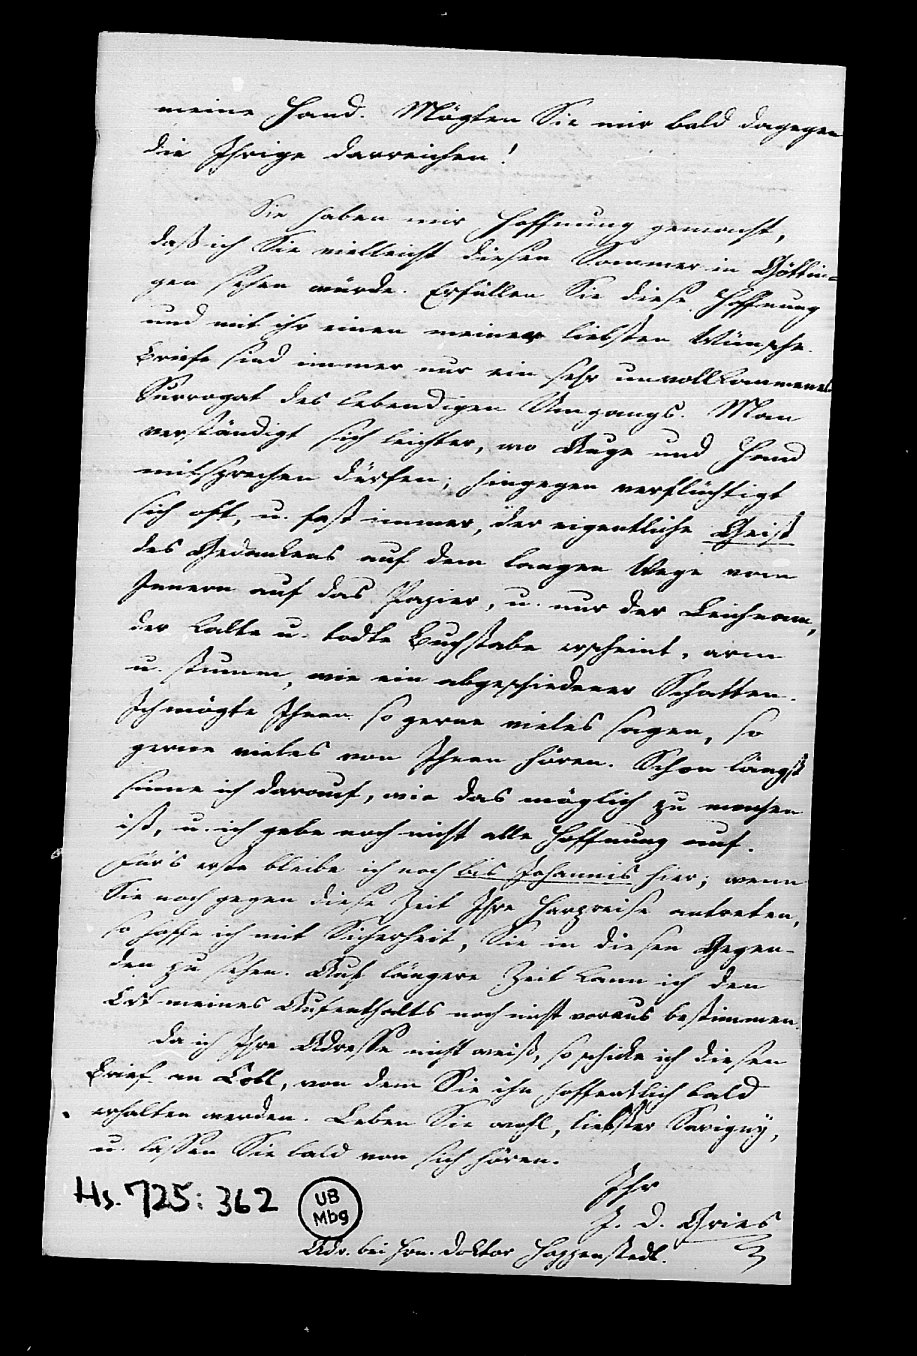 meine Hand. Mögten Sie mir bald dagegen
die Ihrige darreichen!
Sie haben mir Hoffnung gemacht,
daß ich Sie vielleicht diesen Sommer in Göttin-
gen sehen würde. Erfüllen Sie diese Hoffnung
und mit ihr einen meiner liebsten Wünsche.
Briefe sind immer nur ein sehr unvollkommenes
Surrogat des lebendigen Umgangs. Man
verständigt sich leichter, wo Auge und Hand
mitsprechen dürfen; hingegen verflüchtigt
sich oft, u. fast immer, der eigentliche Geist
des Gedankens auf dem langen Wege vom
Innern auf das Papier, u. nur der Leichnam,
der kalte u. todte Buchstabe erscheint, arm
u. stumm, wie ein abgeschiedener Schatten.
Ich mögte Ihnen so gerne vieles sagen, so
gerne vieles von Ihnen hören. Schon längst
sinne ich darauf, wie das möglich zu machen
ist, u. ich gebe noch nicht alle Hoffnung auf.
Für's erste bleibe ich noch bis Johannis hier; wenn
Sie noch gegen diese Zeit Ihre Harzreise antreten,
so hoffe ich mit Sicherheit, Sie in diesen Gegen-
den zu sehen. Auf längere Zeit kann ich den
Ort meines Aufenthalts noch nicht voraus bestimmen.
Da ich Ihre Adresse nicht weiß, so schicke ich diesen
Brief an Köbl, von dem Sie ihn hoffentlich bald
erhalten werden. Leben Sie wohl, liebster Savigny,
u. lassen Sie bald von sich hören.
Ihr
J. D. Gries
Hs. 725: 362
UB
Mbg
Adr. bei Hrn. Doktor Hoppenstedt.